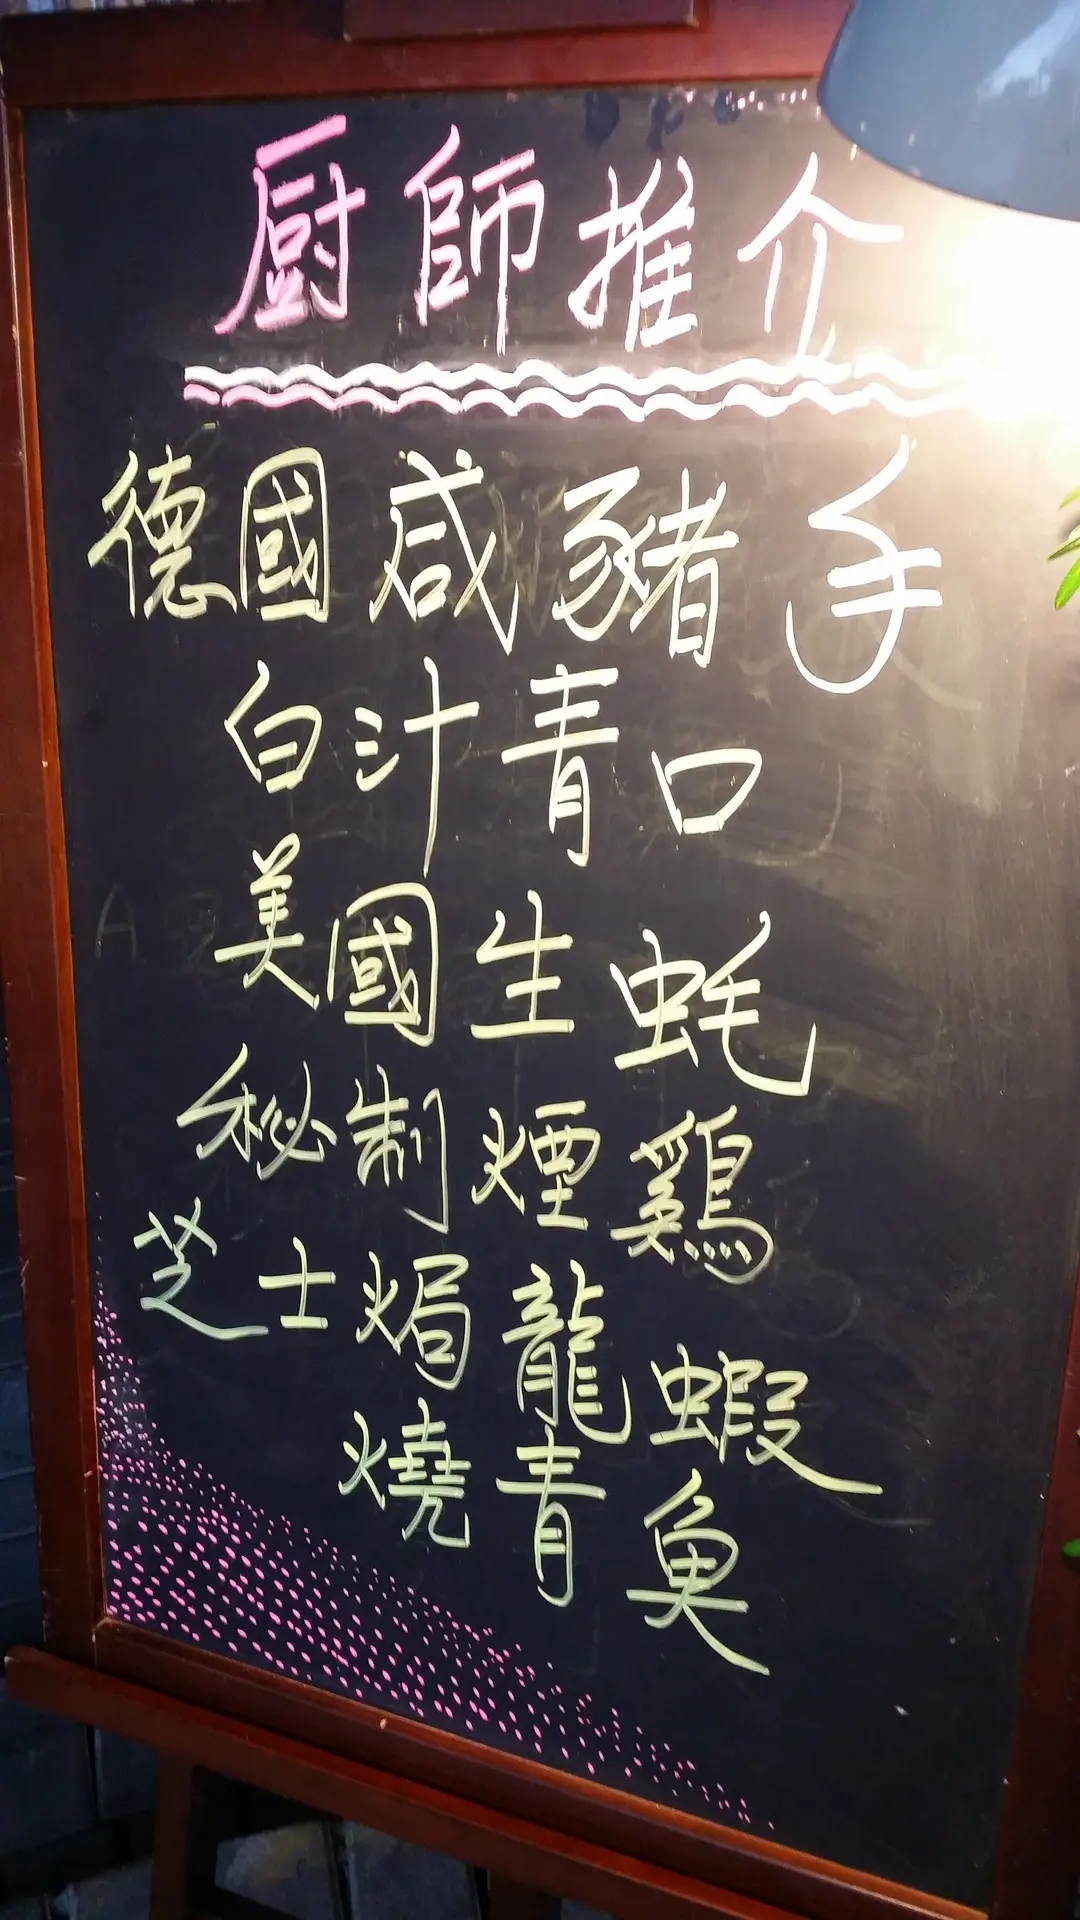 厨師推介
德國咸豬手
白汁青口
美國生蚝
秘制煙鷄
芝士焗龍蝦
燒青魚